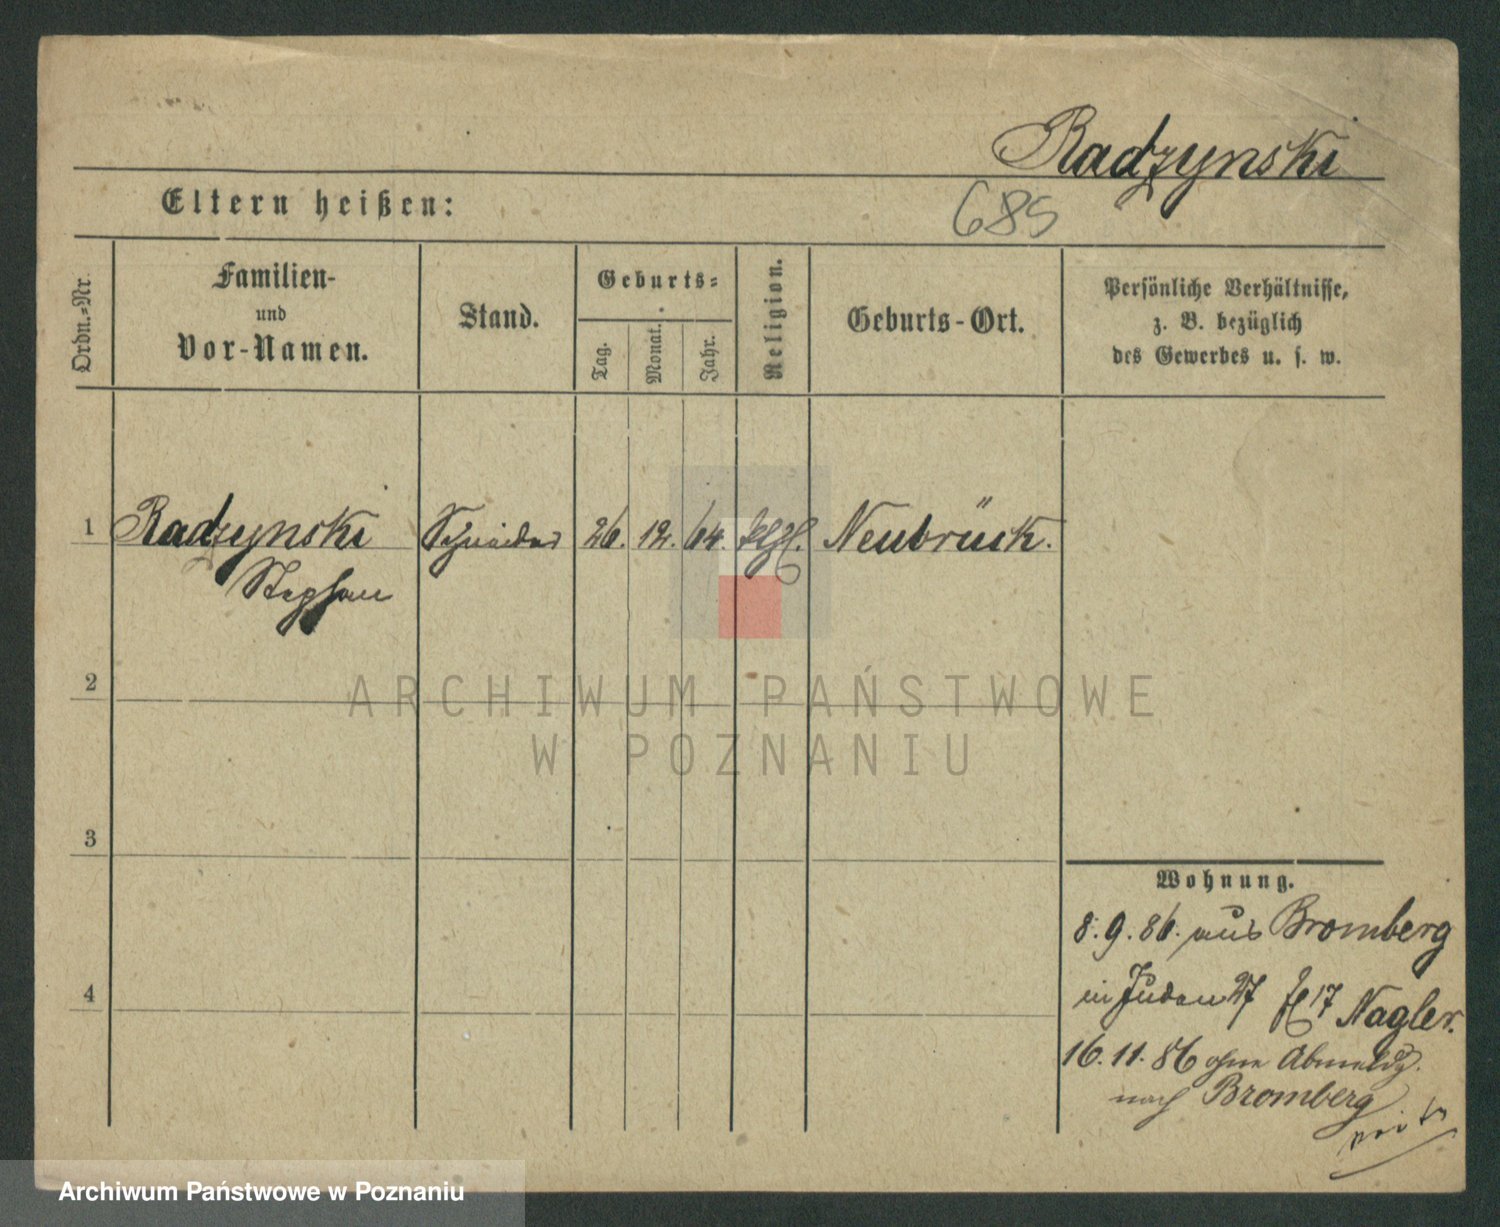 Radzynski
685
Eltern heißen:
Ordn.-Nr.
Familien-
und
Vor-Namen.
Stand.
Geburts-
Tag.
Monat.
Jahr.
Religion.
Geburts-Ort.
Persönliche Verhältnisse,
z. B. bezüglich
des Gewerbes u. s. w.
1 Radzynski Schneider 26. 12. 64. Neubrück.
Stephan
2
ARCHIWUM PAŃSTWOWE
W POZNANIU
3
Wohnung.
8. 9. 86. aus Bromberg
4
in Juden 27 17 Nagler.
16. 11. 86 ohne Abmeldg.
nach Bromberg
Archiwum Państwowe w Poznaniu